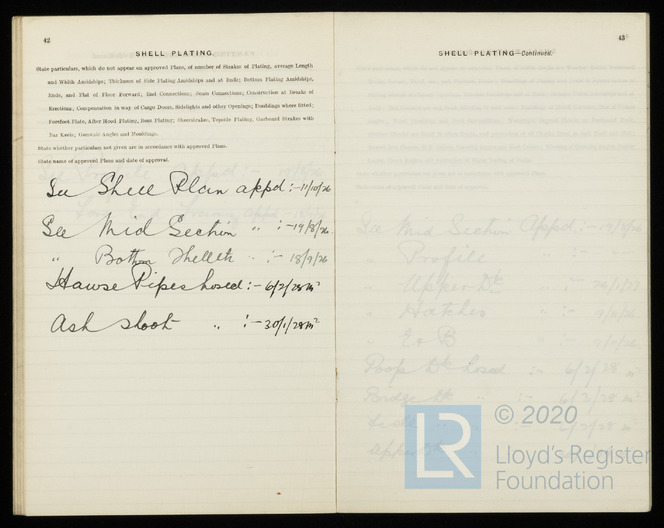 42
SHELL PLATING.
State particulars, which do not appear on approved Plans, of number of Strakes of Plating, average Length
and Width Amidships; Thickness of Side Plating Amidships and at Ends; Bottom Plating Amidships,
Ends, and Flat of Floor Forward; End Connections; Seam Connections; Construction at Breaks of
Erections; Compensation in way of Cargo Doors, Sidelights and other Openings; Doublings where fitted;
Forefoot Plate, After Hood Plating, Boss Plating; Sheerstrakes, Topside Plating, Garboard Strakes with
Bar Keels; Gunwale Angles and Mouldings.
State whether particulars not given are in accordance with approved Plans.
State name of approved Plans and date of approval.
See Shell Plan appd :- 11/10/26
See Mid Section " :- 19/8/26
" Bottom :- 18/9/26
Hawse Pipes hosed :- 6/2/28
Ash shoot " :- 30/1/28
43
SHELL PLATING—Continued.
See Mid Section Appd :- 19/8/26
" Profile
" Upper Dk
" Hatches
Poop Dk hosed :- 6/2/28
Bridge Dk " :- 6/2/28
LR © 2020
Lloyd's Register
Foundation